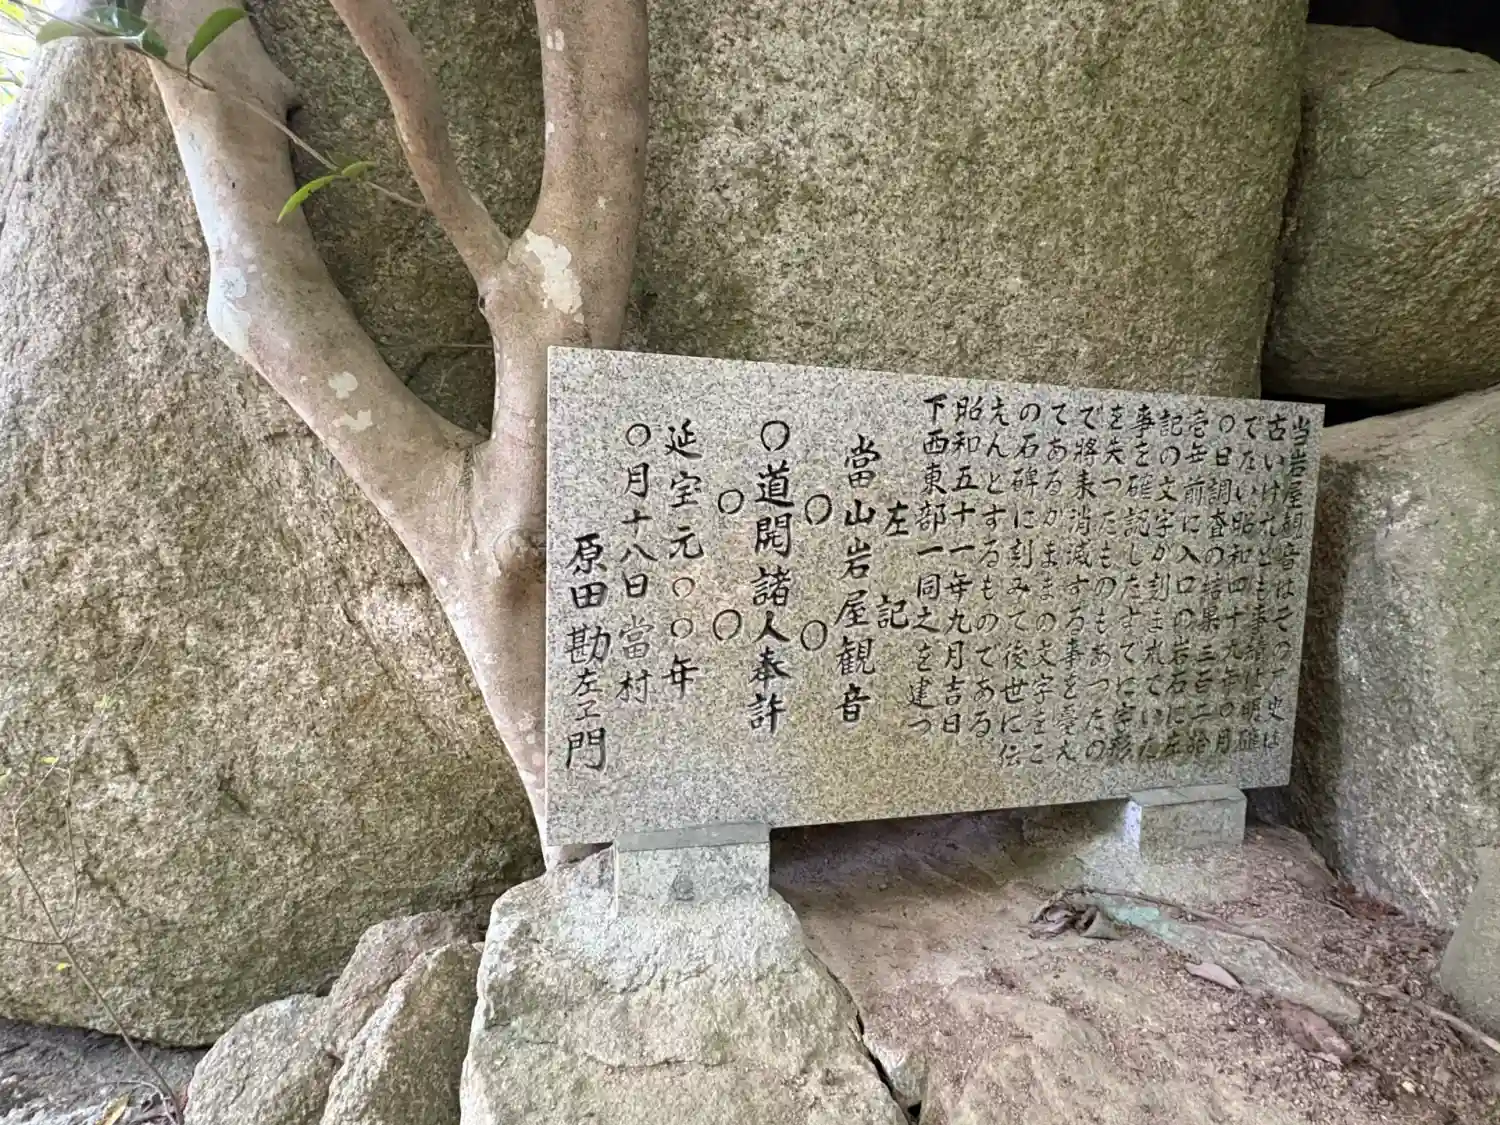 当岩屋観音はその丁史は
古いけれども事諸は明確
でない昭和四十九年〇月
〇日調査の結果三百二拾
壱年前に入口の岩石に左
記の文字が刻まれていた
事を確認したすでに字形
を失ったものもあったの
で將来消滅する事を憂え
てあるがままの文字をこ
の石碑に刻みて後世に伝
えんとするものである
昭和五十一年九月吉日
下西東部一同之を建つ
左記
當山岩屋観音
〇〇
〇道開諸人奉許
〇〇
延宝元〇〇年
〇月十八日當村
原田勘左ヱ門